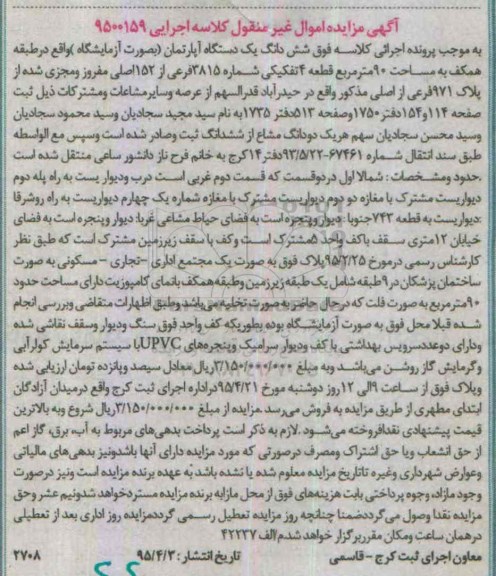 آگهی مزایده اموال غیر منقول کلاسه اجرایی ۹۵۰۰۱۵۹
به موجب پرونده اجرائی کلاسه فوق شش دانگ یک دستگاه آپارتمان (بصورت آزمایشگاه )واقع درطبقه
همکف به مساحت ۹۰مترمربع قطعه ۴تفکیکی شماره ۳۸۱۵فرعی از ۱۵۲اصلی مفروز ومجزی شده از
پلاک ۹۷۱فرعی از اصلی مذکور واقع در حیدرآباد قدرالسهم از عرصه وسایرمشاعات ومشترکات ذیل ثبت
صفحه ۱۱۴و۱۵۴دفتر۱۷۵۰وصفحه ۵۱۳دفتر ۱۷۳۵به نام سید مجید سجادیان وسید محمود سجادیان
وسید محسن سجادیان سهم هریک دودانگ مشاع از ششدانگ ثبت وصادر شده است وسپس مع الواسطه
طبق سند انتقال شماره ۶۷۴۶۱-۹۳/۵/۲۲دفتر۱۴کرج به خانم فرح ناز دانشور ساعی منتقل شده است
.حدود ومشخصات : شمالا اول دردوقسمت که قسمت دوم غربی است درب ودیوار یست به راه پله دوم
دیواریست مشترک با مغازه دو دوم دیواریست مشترک با مغازه شماره یک چهارم دیواریست به راه روشرقا
:دیواریست به قطعه ۷۴۲جنوبا: دیوار وپنجره است به فضای حیاط مشاعی غربا: دیوار وپنجره است به فضای
خیابان ۱۲متری سقف باکف واحد ۵مشترک است وکف با سقف زیرزمین مشترک است که طبق نظر
کارشناس رسمی درمورخ ۹۵/۲/۲۵پلاک فوق به صورت یک مجتمع اداری -تجاری - مسکونی به صورت
ساختمان پزشکان در ۹طبقه شامل یک طبقه زیرزمین وطبقه همکف بانمای کامپوزیت دارای مساحت حدود
۹۰مترمربع به صورت فلت که درحال حاضر به صورت تخلیه می باشد وطبق اظهارات متقاضی وبررسی انجام
شده قبلا محل فوق به صورت آزمایشگاه بوده بطوریکه کف واحد فوق سنگ ودیوار وسقف نقاشی شده
ودارای دوعددسرویس بهداشتی با کف ودیوار سرامیک وپنجره‌های UPVCبا سیستم سرمایش کولرآبی
وگرمایش گاز روشن می‌باشد وبه مبلغ ۳/۱۵۰/۰۰۰/۰۰۰ریال معادل سیصد وپانزده تومان ارزیابی شده
وپلاک فوق از ساعت ۹الی ۱۲روز دوشنبه مورخ ۹۵/۴/۲۱دراداره اجرای ثبت کرج واقع درمیدان آزادگان
ابتدای مطهری از طریق مزایده به فروش می‌رسد.مزایده از مبلغ ۳/۱۵۰/۰۰۰/۰۰۰ریال شروع وبه بالاترین
قیمت پیشنهادی نقدافروخته می‌شود .لازم به ذکر است پرداخت بدهی‌های مربوط به آب، برق، گاز اعم
از حق انشعاب ویا حق اشتراک ومصرف درصورتی که مورد مزایده دارای آنها باشدونیز بدهی‌های مالیاتی
وعوارض شهرداری وغیره تاتاریخ مزایده معلوم شده یا نشده باشد به عهده برنده مزایده است ونیز درصورت
وجود مازاد، وجوه پرداختی بابت هزینه‌های فوق از محل مازابه برنده مزایده مستردخواهد شدونیم عشر وحق
مزایده نقدا وصول می‌گرددضمنا چنانچه روز مزایده تعطیل رسمی گرددمزایده روز اداری بعد از تعطیلی
درهمان ساعت ومکان مقرربرگزار خواهد شدم/الف ۴۲۲۳۷
معاون اجرای ثبت کرج - قاسمی تاریخ انتشار : ۹۵/۴/۳ ۲۷۰۸